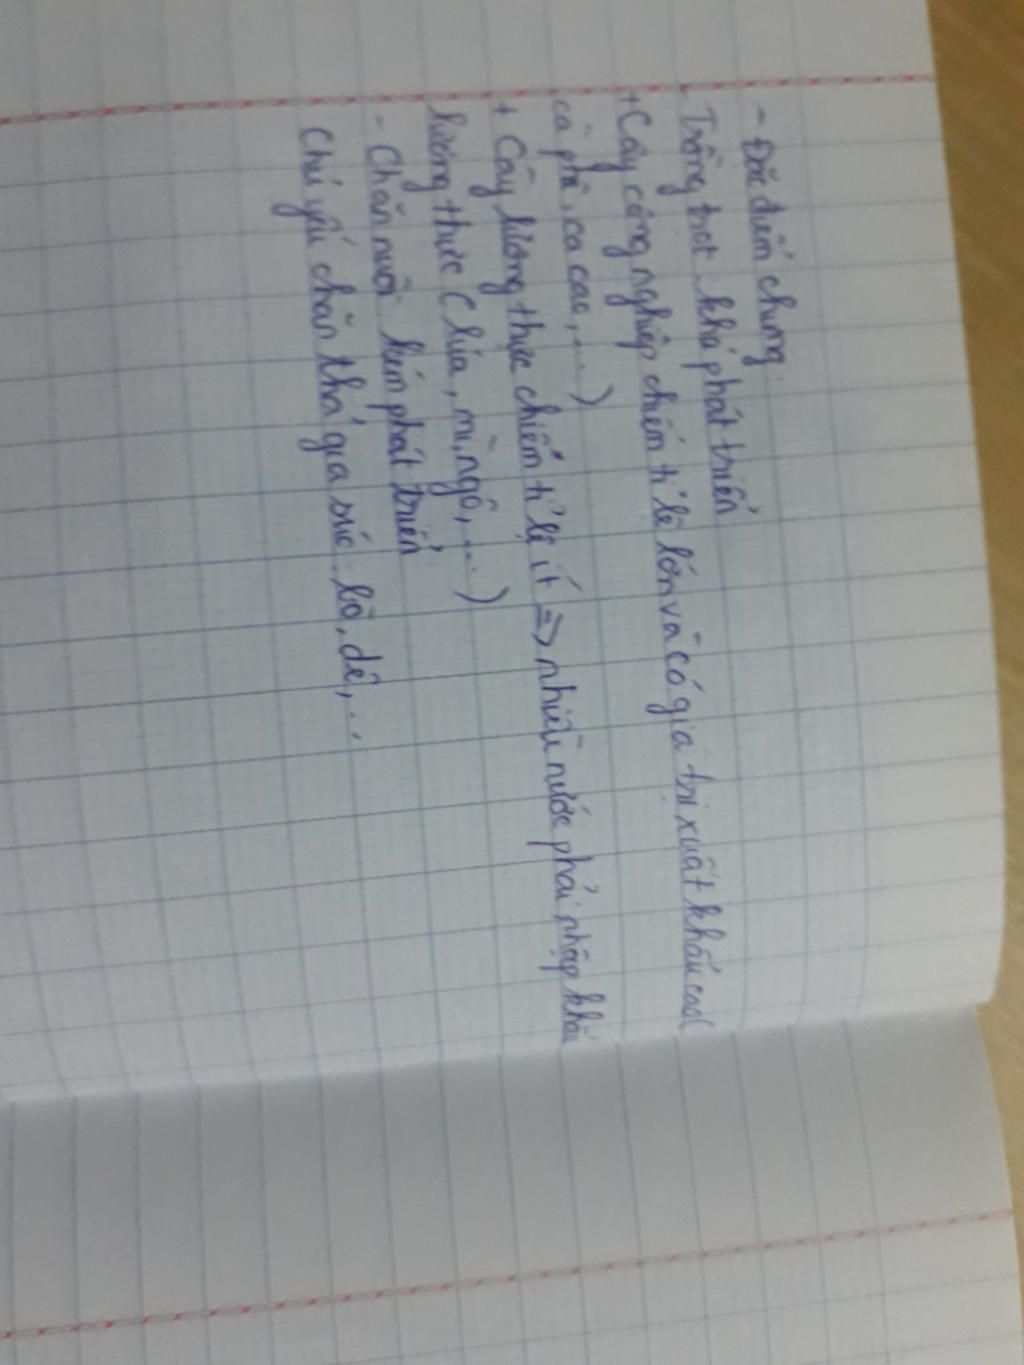 - Đặc điểm chung
- Trồng trọt khá phát triển
+ Cây công nghiệp chiếm tỉ lệ lớn và có giá trị xuất khẩu cao(
cà phê, ca cao,...)
+ Cây lương thực chiếm tỉ lệ ít => nhiều nước phải nhập khẩu
lương thực (lúa, mì, ngô,...)
- Chăn nuôi kém phát triển
Chủ yếu chăn thả gia súc: bò, dê,...